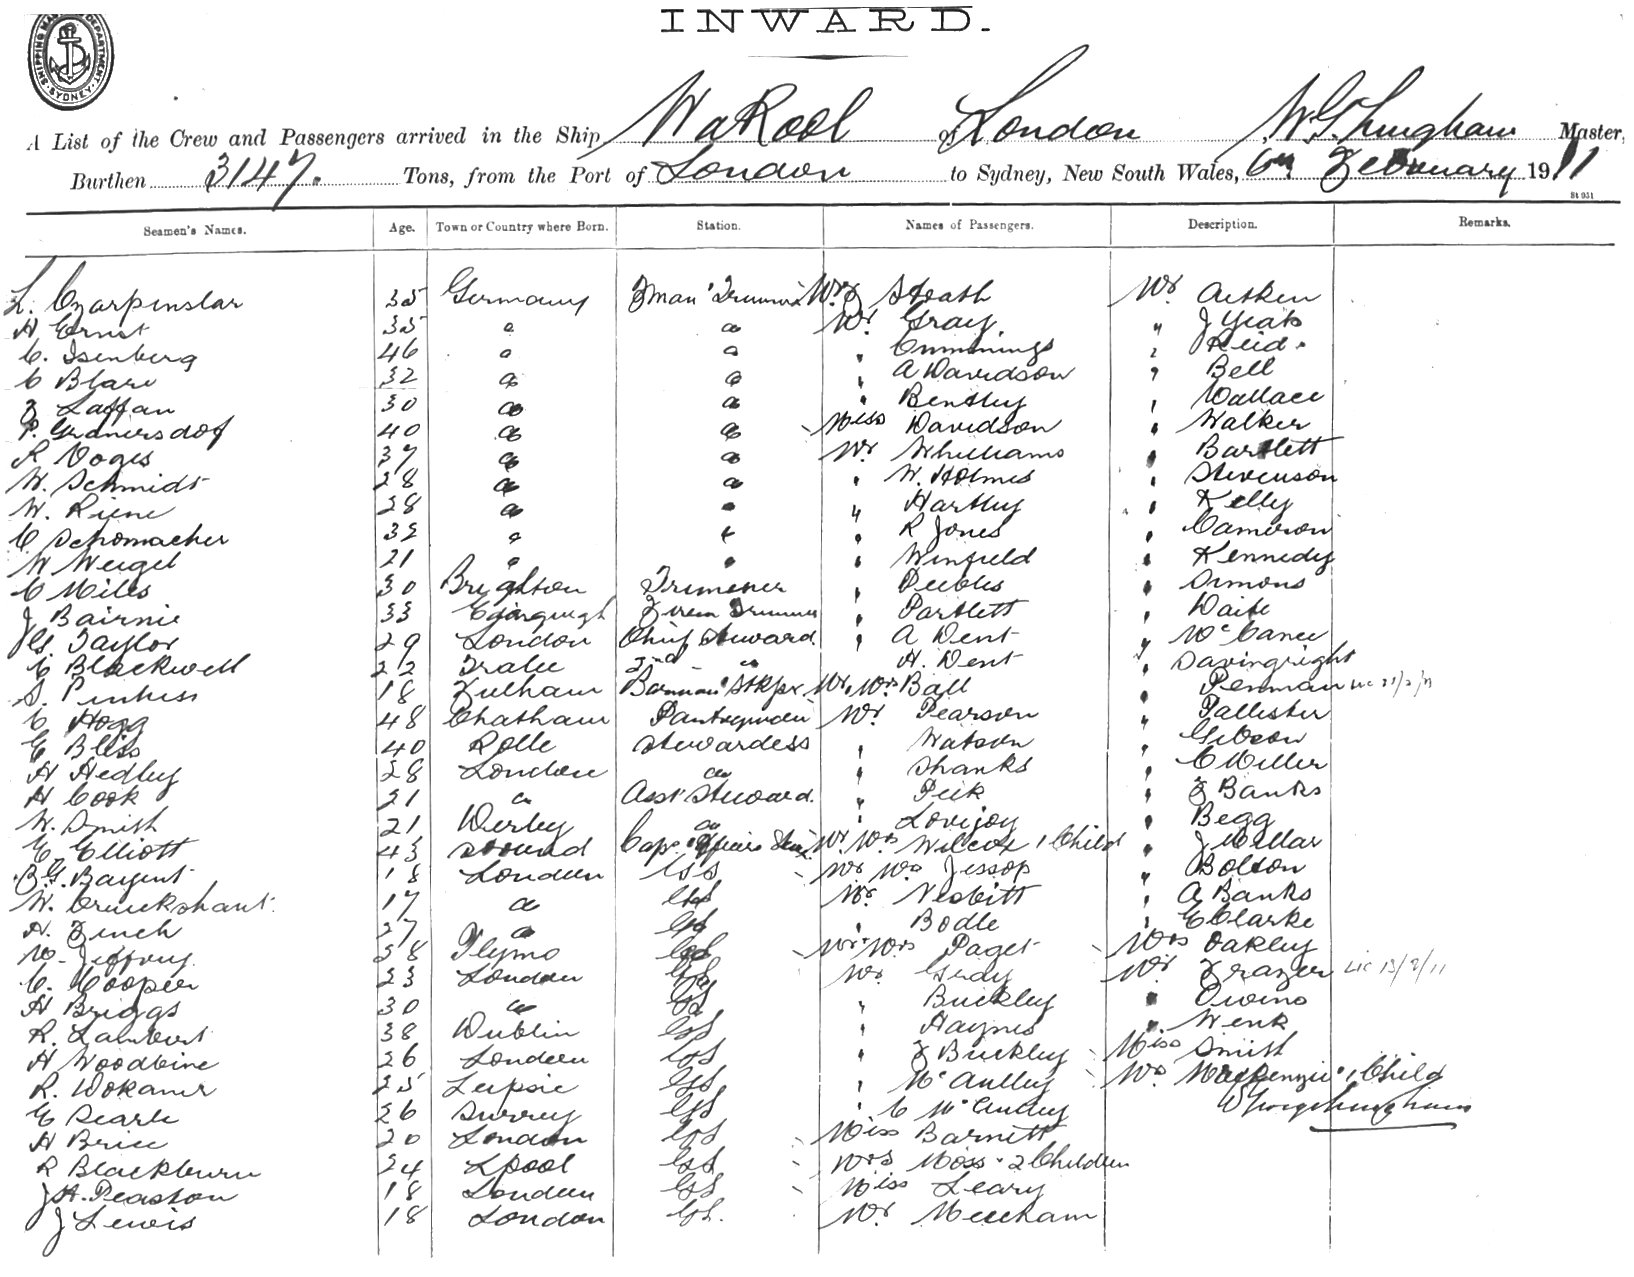 INWARD.
SHIPPING MASTER'S DEPARTMENT SYDNEY
A List of the Crew and Passengers arrived in the Ship WaKool of London W G Lingham Master,
Burthen 3147. Tons, from the Port of London to Sydney, New South Wales, 6th February 1911
St 951
Seamen's Names. Age. Town or Country where Born. Station. Names of Passengers. Description. Remarks.
35 Germany Heath Mr Aitken
H Ernst 35 " " Mr Gray. " J Yeats
C. Isenberg 46 " " " Cummings " Reid.
C Blase 32 " " " A Davidson " Bell
F Laffan 30 " " " Bentley " Wallace
40 " " Miss Davidson " Walker
R Voges 37 " " Mr Williams " Bartlett
W. Schmidt 28 " " " W. Holmes " Stevenson
W. Riene 28 " " " Hartley " Kelly
C Schomacher 32 " " " R Jones " Cameron
W Weigel 21 " " " Winfield " Kennedy
C Miles 30 Brighton Trimmer " Peebles " Simons
J Bairnie 33 " Partlett " Waite
J G. Taylor 29 London Chief Steward. " A Dent " McCance
C Blackwell 22 Tralee 2nd " " H. Dent " Davingright
S. Pinkess 18 Fulham Barman Stkpr Mr. Mrs Ball " Penman
C Hogg 48 Chatham Pantryman Mr Pearson " Pallister
E Bliss 40 Rolle Stewardess " Watson " Gibson
H Hedley 28 London " " Shanks " C Miller
H Cook 21 " Asst Steward. " Peek " F Banks
W. Smith 21 Derby " " Lovejoy " Begg
E. Elliott 43 Stroud Mr. Mrs Wilcox 1 Child " J Millar
B. G. Bargent 18 London GS Mr Mrs Jessop " Bolton
W. Cruickshank. 17 " GS Mr. Nesbitt " A Banks
H. Finch 27 " GS " Bodle " E Clarke
W. Jeffrey. 38 Plymo GS Mr. Mrs Paget Mrs Oakley
C. Cooper 23 London GS Mr Gredy Mr. Frazer Lic 13/2/11
H Briggs 30 " GS " Buckley " Owens
R. Lambert 38 Dublin GS " Haynes " Wenk
H Woodbine 26 London GS " F Buckley Miss Smith
R. Wokaner 25 Leipsic GS " McAulley Mrs MacKenzie 1 Child
E Searle 26 Surrey GS " C McAuley
H Brice 20 London GS Miss Barnett
R Blackburn 24 Lpool GS Mrs Moss 2 Children
J H. Peaston 18 London GS Miss Leary
J Lewis 18 London GS. Mr Meecham